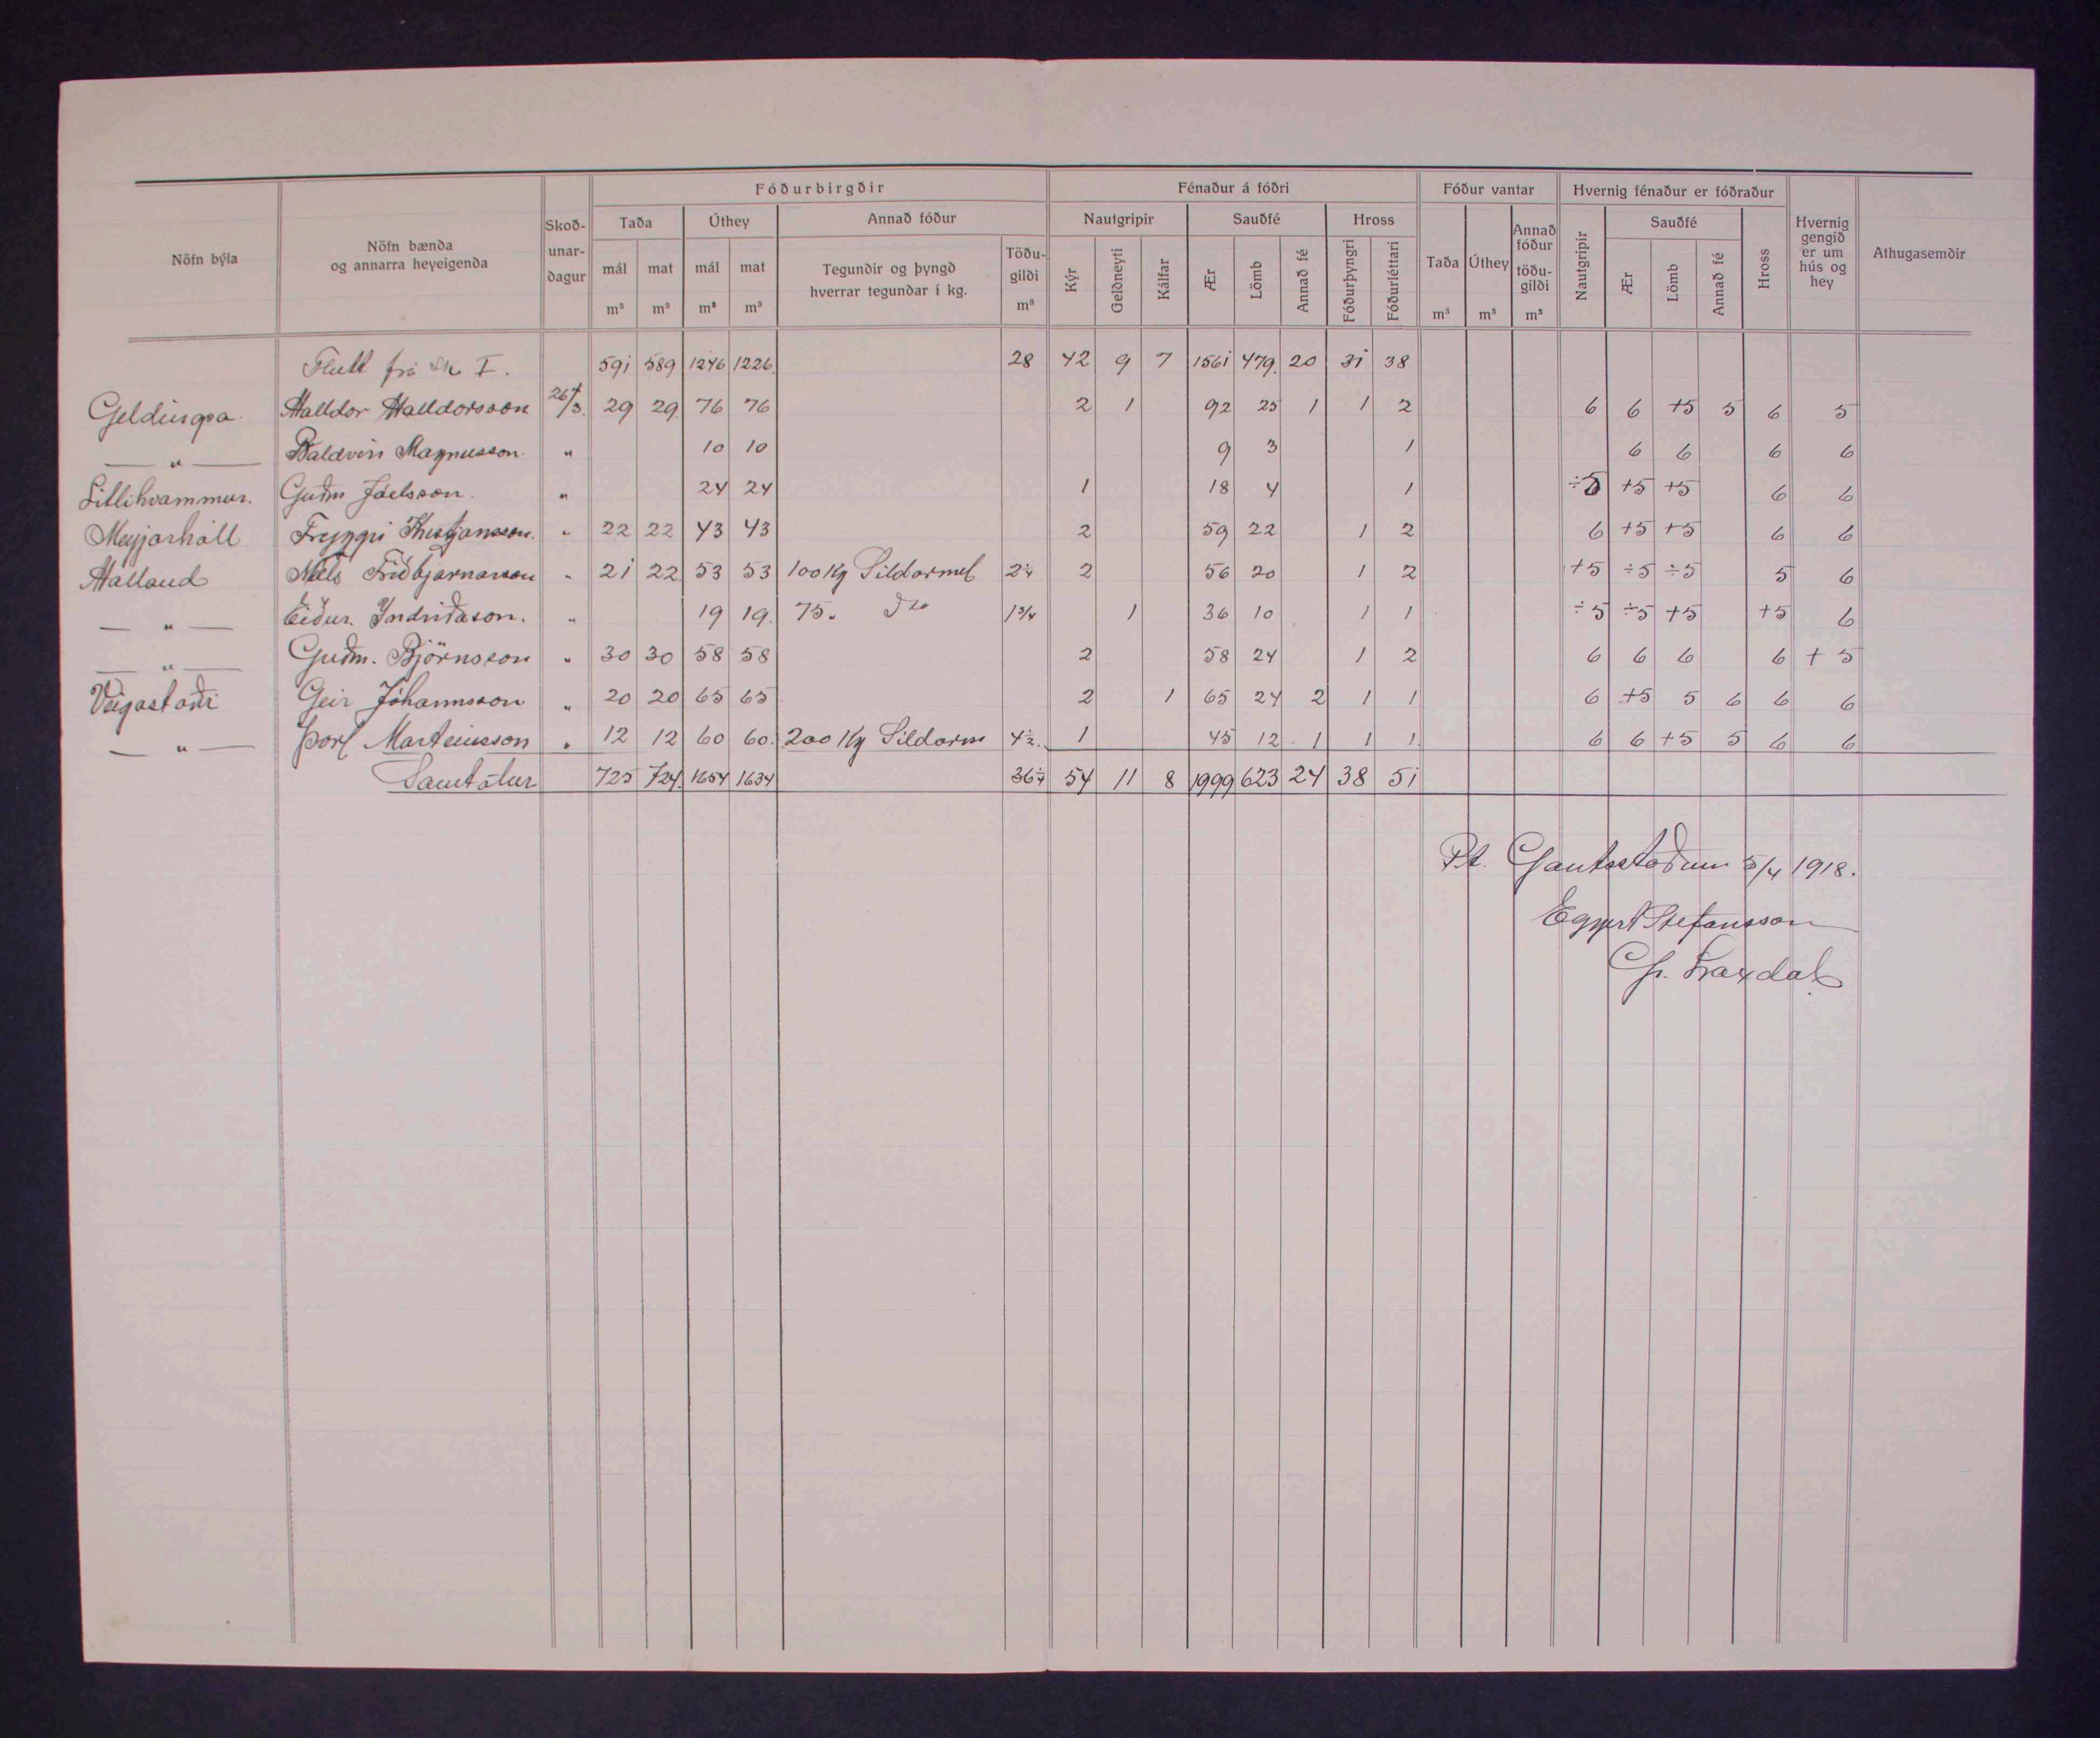 Fóðurbirgðir Fénaður á fóðri Fóður vantar Hvernig fénaður er fóðraður
Nöfn býla Nöfn bænda og annarra heyeigenda Skoðunardagur Taða Úthey Annað fóður Nautgripir Sauðfé Hross Taða Úthey Annað fóður töðugildi Nautgripir Sauðfé Hross Hvernig gengið er um hús og hey Athugasemðir
mál mat mál mat Tegunðir og þyngð hverrar tegunðar í kg. Töðugildi Kýr Geldneyti Kálfar Ær Lömb Annað fé Fóðurþyngri Fóðurléttari Ær Lömb Annað fé
m³ m³ m³ m³ m³ m³ m³ m³
Flutt frá sk I. 591 589 1246 1226 28 42 9 7 1561 479 20 31 38
Geldingsá Halldor Halldorsson 26/3 29 29 76 76 2 1 92 25 1 1 2 6 6 +5 5 6 5
— " — Baldvin Magnusson " 10 10 9 3 1 6 6 6 6
Litlihvammur. Guðm Jóelsson. " 24 24 1 18 4 1 ÷5 +5 +5 6 6
Meyjarhóll Tryggvi Kristjansson. " 22 22 43 43 2 59 22 1 2 6 +5 +5 6 6
Halland Niels Friðbjarnarson " 21 22 53 53 100 Kg Sildarmel 2¼ 2 56 20 1 2 +5 ÷5 ÷5 5 6
— " — Eiður Indriðason. " 19 19 75 " Do 1¾ 1 36 10 1 1 ÷5 ÷5 +5 +5 6
— " — Guðm. Björnsson " 30 30 58 58 2 58 24 1 2 6 6 6 6 +5
Veigastaðir Geir Jóhannsson " 20 20 65 65 2 1 65 24 2 1 1 6 +5 5 6 6 6
— " — Þorl Marteinsson " 12 12 60 60 200 Kg Sildarm 4½ 1 45 12 1 1 1 6 6 +5 5 6 6
Samtölur 725 724 1654 1634 36¼ 54 11 8 1999 623 24 38 51
P.t. Gautsstöðum 5/4 1918.
Eggert Stefansson
Laxdal